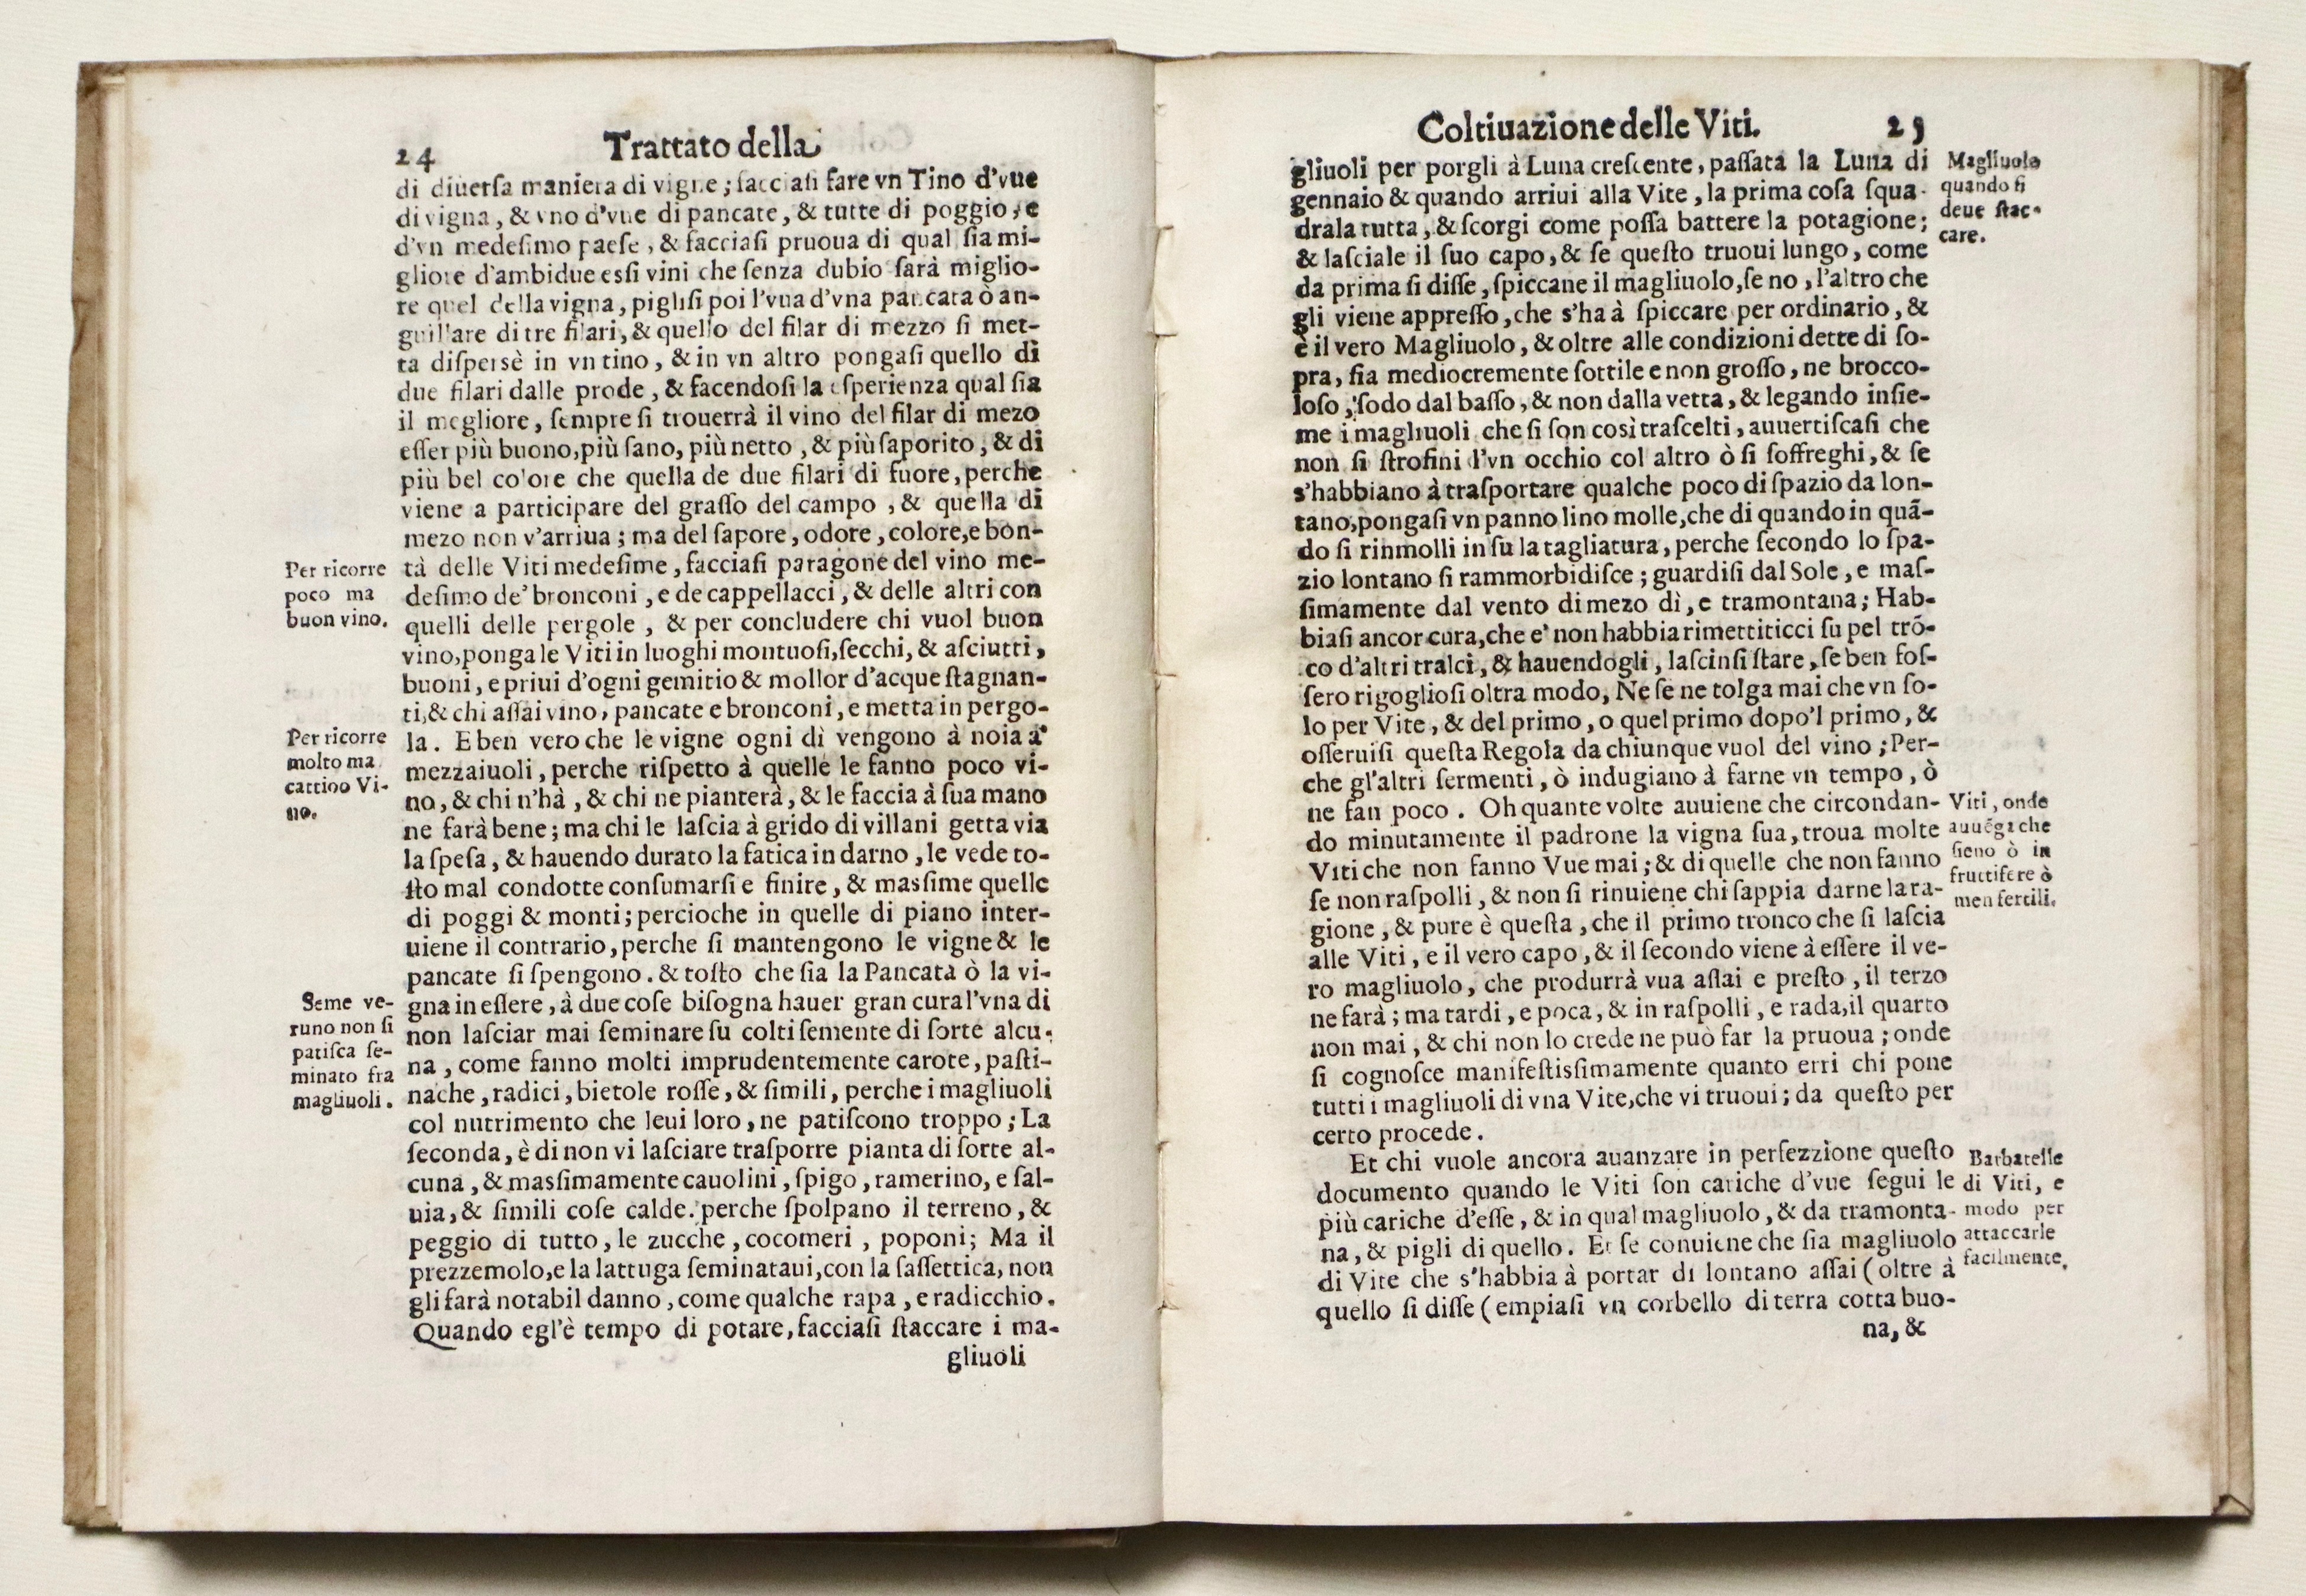 24 Trattato della
di diuerſa maniera di vigne; facciaſi fare vn Tino d'vue
di vigna, & vno d'vue di pancate, & tutte di poggio, e
d'vn medeſimo paeſe, & facciaſi pruoua di qual ſia mi-
gliore d'ambidue eſsi vini che ſenza dubio ſarà miglio-
re quel della vigna, pigliſi poi l'vua d'vna pancata ò an-
guillare di tre filari, & quello del filar di mezzo ſi met-
ta diſpersè in vn tino, & in vn altro pongaſi quello di
due filari dalle prode, & facendoſi la eſperienza qual ſia
il megliore, ſempre ſi trouerrà il vino del filar di mezo
eſſer più buono, più ſano, più netto, & più ſaporito, & di
più bel colore che quella de due filari di fuore, perche
viene a participare del graſſo del campo, & quella di
mezo non v'arriua; ma del ſapore, odore, colore, e bon-
Per ricorre
poco ma
buon vino.
tà delle Viti medeſime, facciaſi paragone del vino me-
deſimo de' bronconi, e de cappellacci, & delle altri con
quelli delle pergole, & per concludere chi vuol buon
vino, ponga le Viti in luoghi montuoſi, ſecchi, & aſciutti,
buoni, e priui d'ogni gemitio & mollor d'acque ſtagnan-
ti, & chi aſſai vino, pancate e bronconi, e metta in pergo-
Per ricorre
molto ma
cattiuo Vi-
no.
la. E ben vero che le vigne ogni dì vengono à noia a'
mezzaiuoli, perche riſpetto à quelle le fanno poco vi-
no, & chi n'hà, & chi ne pianterà, & le faccia à ſua mano
ne farà bene; ma chi le laſcia à grido di villani getta via
la ſpeſa, & hauendo durato la fatica in darno, le vede to-
ſto mal condotte conſumarſi e finire, & maſsime quelle
di poggi & monti; percioche in quelle di piano inter-
uiene il contrario, perche ſi mantengono le vigne & le
pancate ſi ſpengono. & toſto che ſia la Pancata ò la vi-
Seme ve-
runo non ſi
patiſca ſe-
minato fra
magliuoli.
gna in eſſere, à due coſe biſogna hauer gran cura l'vna di
non laſciar mai ſeminare ſu colti ſemente di ſorte alcu-
na, come fanno molti imprudentemente carote, paſti-
nache, radici, bietole roſſe, & ſimili, perche i magliuoli
col nutrimento che leui loro, ne patiſcono troppo; La
ſeconda, è di non vi laſciare traſporre pianta di ſorte al-
cuna, & maſsimamente cauolini, ſpigo, ramerino, e ſal-
uia, & ſimili coſe calde. perche ſpolpano il terreno, &
peggio di tutto, le zucche, cocomeri, poponi; Ma il
prezzemolo, e la lattuga ſeminataui, con la ſaſſettica, non
gli farà notabil danno, come qualche rapa, e radicchio.
Quando egl'è tempo di potare, facciaſi ſtaccare i ma-
gliuoli
Coltiuazione delle Viti. 25
Magliuolo
quando ſi
deue ſtac-
care.
gliuoli per porgli à Luna creſcente, paſſata la Luna di
gennaio & quando arriui alla Vite, la prima coſa ſqua-
drala tutta, & ſcorgi come poſſa battere la potagione;
& laſciale il ſuo capo, & ſe queſto truoui lungo, come
da prima ſi diſſe, ſpiccane il magliuolo, ſe no, l'altro che
gli viene appreſſo, che s'ha à ſpiccare per ordinario, &
è il vero Magliuolo, & oltre alle condizioni dette di ſo-
pra, ſia mediocremente ſottile e non groſſo, ne brocco-
loſo, ſodo dal baſſo, & non dalla vetta, & legando inſie-
me i magliuoli che ſi ſon così traſcelti, auuertiſcaſi che
non ſi ſtrofini l'vn occhio col altro ò ſi ſoffreghi, & ſe
s'habbiano à traſportare qualche poco di ſpazio da lon-
tano, pongaſi vn panno lino molle, che di quando in quã-
do ſi rinmolli in ſu la tagliatura, perche ſecondo lo ſpa-
zio lontano ſi rammorbidiſce; guardiſi dal Sole, e maſ-
ſimamente dal vento di mezo dì, e tramontana; Hab-
biaſi ancor cura, che e' non habbia rimettiticci ſu pel trõ-
co d'altri tralci, & hauendogli, laſcinſi ſtare, ſe ben foſ-
ſero rigoglioſi oltra modo, Ne ſe ne tolga mai che vn ſo-
lo per Vite, & del primo, o quel primo dopo'l primo, &
oſſeruiſi queſta Regola da chiunque vuol del vino; Per-
che gl'altri ſermenti, ò indugiano à farne vn tempo, ò
Viti, onde
auuẽga che
ſieno ò in
fruttifere ò
men fertili.
ne fan poco. Oh quante volte auuiene che circondan-
do minutamente il padrone la vigna ſua, troua molte
Viti che non fanno Vue mai; & di quelle che non fanno
ſe non raſpolli, & non ſi rinuiene chi ſappia darne la ra-
gione, & pure è queſta, che il primo tronco che ſi laſcia
alle Viti, e il vero capo, & il ſecondo viene à eſſere il ve-
ro magliuolo, che produrrà vua aſſai e preſto, il terzo
ne farà; ma tardi, e poca, & in raſpolli, e rada, il quarto
non mai, & chi non lo crede ne può far la pruoua; onde
ſi cognoſce manifeſtiſsimamente quanto erri chi pone
tutti i magliuoli di vna Vite, che vi truoui; da queſto per
certo procede.
Barbatelle
di Viti, e
modo per
attaccarle
facilmente.
Et chi vuole ancora auanzare in perfezzione queſto
documento quando le Viti ſon cariche d'vue ſegui le
più cariche d'eſſe, & in qual magliuolo, & da tramonta-
na, & pigli di quello. Et ſe conuiene che ſia magliuolo
di Vite che s'habbia à portar di lontano aſſai (oltre à
quello ſi diſſe (empiaſi vn corbello di terra cotta buo-
na, &